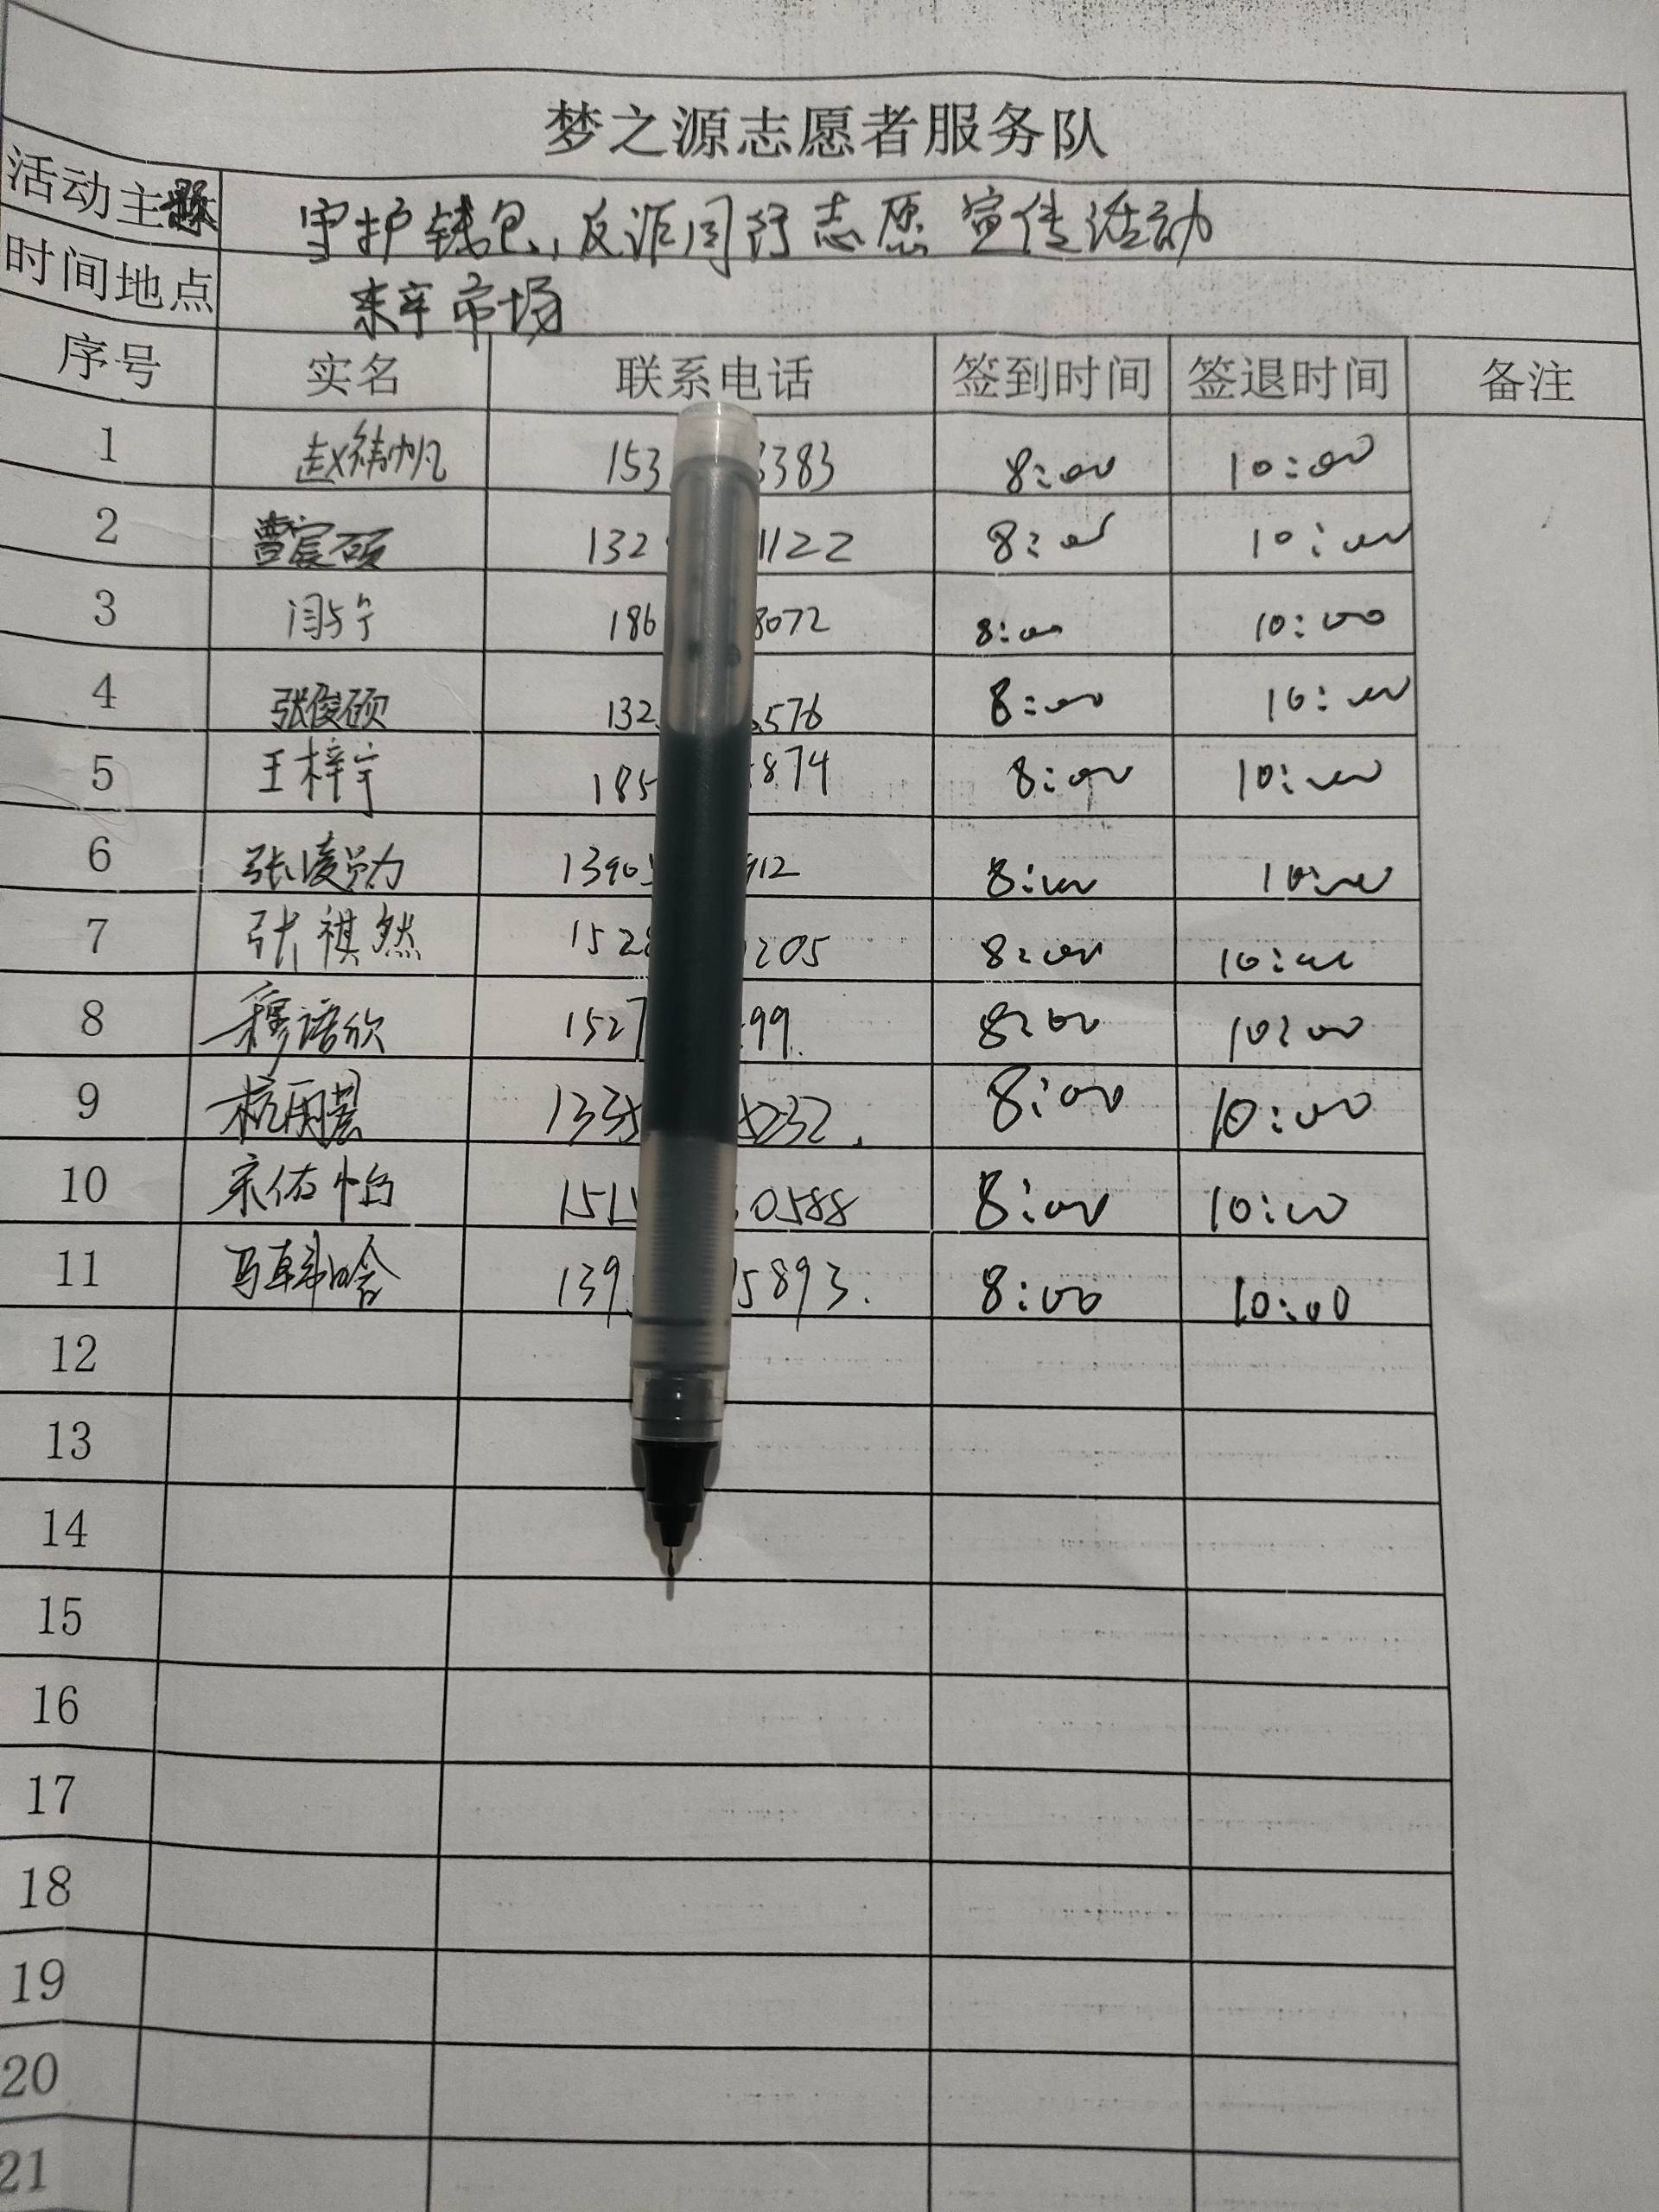 梦之源志愿者服务队
活动主题 守护钱包,反诈同行志愿宣传活动
时间地点 市场
序号 实名 联系电话 签到时间 签退时间 备注
1 赵祎帆 153 3383 8:00 10:00
2 曹宸硕 132 1122 8:00 10:00
3 闫宁 186 8072 8:00 10:00
4 张俊硕 132 576 8:00 10:00
5 王梓宁 185 874 8:00 10:00
6 张凌 1390 912 8:00 10:00
7 张祺然 152 205 8:00 10:00
8 穆语欣 1527 99 8:00 10:00
9 杭雨 133 232 8:00 10:00
10 宋佑怡 151 0588 8:00 10:00
11 马 晗 139 5893 8:00 10:00
12
13
14
15
16
17
18
19
20
21